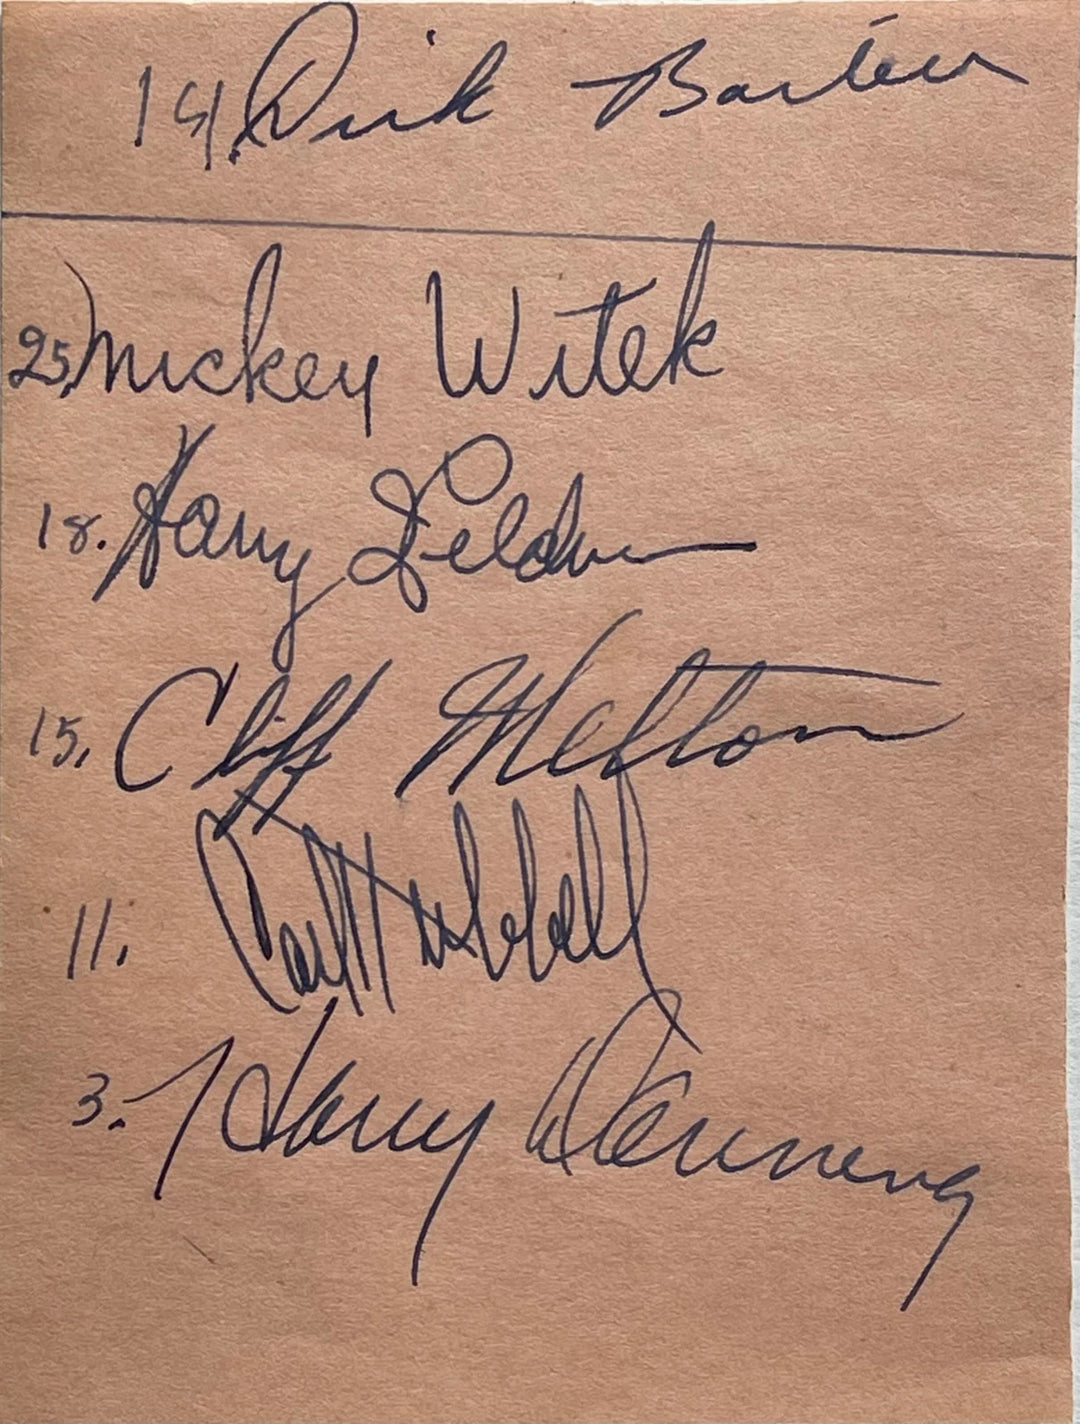 19. Dick Bartell
25. Mickey Witek
18. Harry Feldman
15. Cliff Melton
11. Carl Hubbell
3. Harry Danning